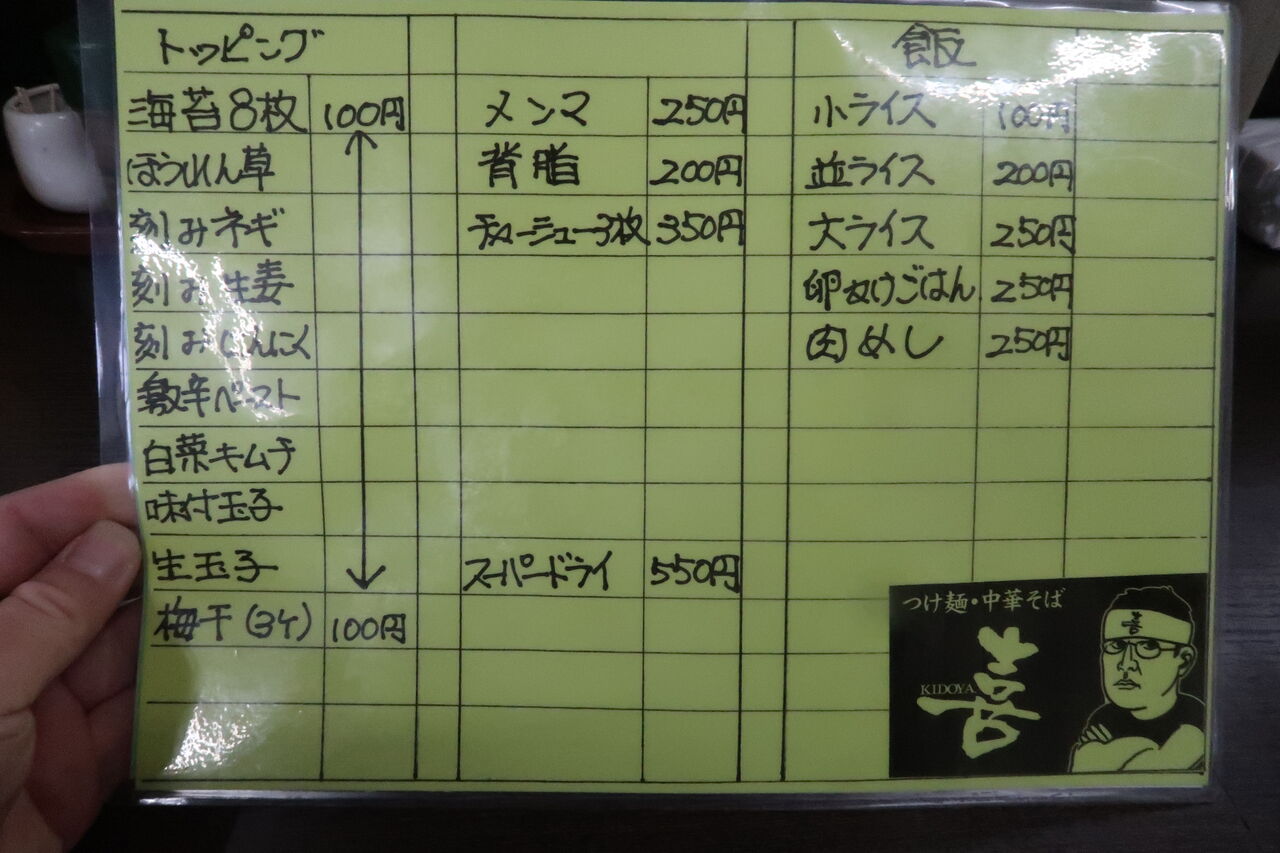 トッピング
海苔8枚 100円
ほうれん草
刻みネギ
刻み生姜
刻みにんにく
激辛ペースト
白菜キムチ
味付玉子
生玉子
梅干(3ケ) 100円
メンマ 250円
背脂 200円
チャーシュー3枚 350円
スーパードライ 550円
飯
小ライス 100円
並ライス 200円
大ライス 250円
卵かけごはん 250円
肉めし 250円
つけ麺・中華そば
喜
KIDOYA
喜